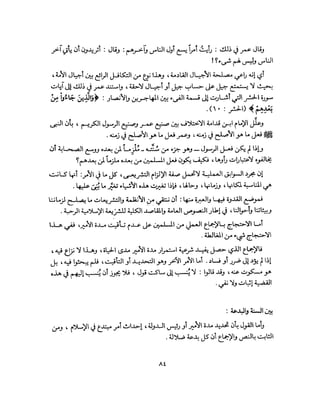 وقال عمر في ذلك : رأيتُ أمراً يسع أول الناس وآخرهم : وقال : أتريدون أن يأتي آخر
الناس وليس لهم شيء؟!
أي إنه راعى مصلحة الأجيال القادمة، وهذا نوع من التكافل الرائع بين أجيال الأمة،
بحيث لا يستمتع جيل على حساب جيل أو أجيال لاحقة، واستند عمر في ذلك إلى آيات
سورة الحشر التي أشارت إلى قسمة الفيء بين المهاجرين والأنصار : ﴿ وَالَّذِينَ جَاءُوا مِنْ
بَعْدِهِمْ ﴾ (الحشر : ١٠).
وعلَّل الإمام ابن قدامة الاختلاف بين صنيع عمر وصنيع الرسول الكريم، بأن النبي
ﷺ فعل ما هو الأصلح في زمنه، وعمر فعل ما هو الأصلح في زمنه.
وإذا لم يكن فعل الرسول ــ وهو جزء من سُنَّته ــ مُلزماً لمن بعده ووسع الصحابة أن
يخالفوه لاعتبارات رأوها، فكيف يكون فعل المسلمين من بعده ملزماً لمن بعدهم؟
إن مجرد السوابق العملية لا تحمل صفة الإلزام التشريعي، كل ما في الأمر: أنها كانت
هي المناسبة لمكانها، وزمانها، وحالها، فإذا تغيرت هذه الأشياء تغيَّر ما بُنِيَ عليها.
فموضع القدوة فيها والعبرة منها: أن ننتقي من الأنظمة والتشريعات ما يصلح لزماننا
وبيئاتنا وأحوالنا، في إطار النصوص العامة والمقاصد الكلية للشريعة الإسلامية الرحبة.
أما الاحتجاج بالإجماع العملي من المسلمين على عدم تأقيت مدة الأمير، ففي هذا
الاحتجاج شيء من المغالطة.
فالإجماع الذي حصل يفيد شرعية استمرار مدة الأمير مدى الحياة، وهذا لا نزاع فيه،
إذا لم يؤد إلى ضرر أو فساد. أما الأمر الآخر وهو التحديد أو التأقيت، فلم يبحثوا فيه، بل
هو مسكوت عنه، وقد قالوا : لا يُنسب إلى ساكت قول، فلا يجوز أن يُنسب إليهم في هذه
القضية إثبات ولا نفي.
بين السنة والبدعة :
وأما القول بأن تحديد مدة الأمير أو رئيس الدولة، إحداث أمر مبتدع في الإسلام، ومن
الثابت بالنص والإجماع أن كل بدعة ضلالة.
٨٤